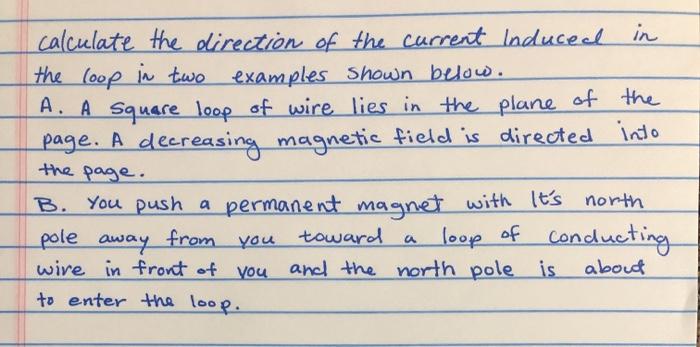 calculate the direction of the current Induced in
the loop in two examples shown below.
A. A square loop of wire lies in the plane of the
page. A decreasing magnetic field is directed into
the page.
B. You push a permanent magnet with It's north
pole away from you toward a loop of conducting
wire in front of you and the north pole is about
to enter the loop.